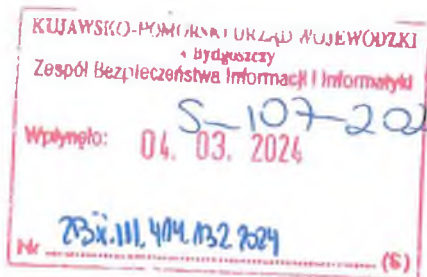 KUJAWSKO-POMORSKI URZĄD WOJEWÓDZKI
w Bydgoszczy
Zespół Bezpieczeństwa Informacji i Informatyki
S-107-202
Wpłynęło: 04. 03. 2024
Nr 414.132.2024 (6)